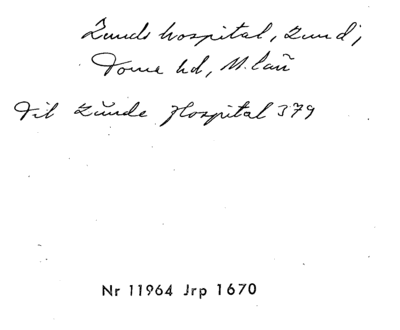 Lunds hospital, Lund,
Torna hd, M.län
Till Lunds Hospital 379
Nr 11964 Jrp 1670